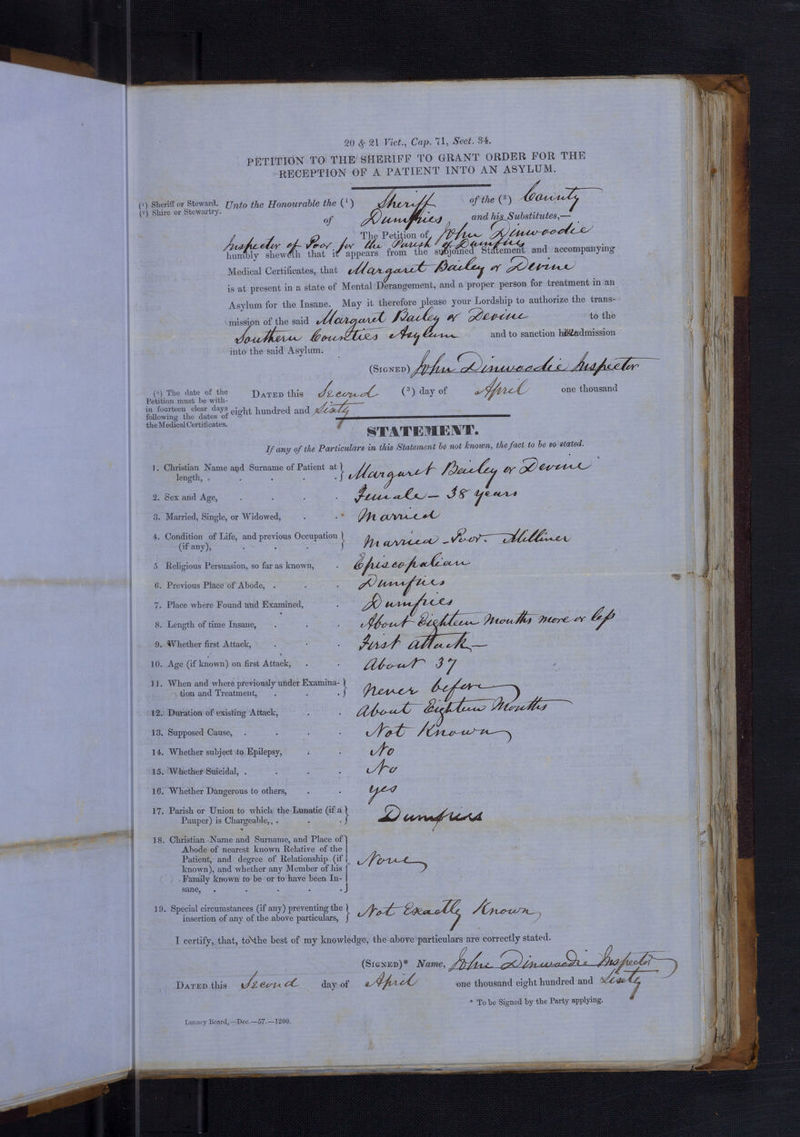 20 & 21 Vict., Cap. 71, Sect. 34.
PETITION TO THE SHERIFF TO GRANT ORDER FOR THE
RECEPTION OF A PATIENT INTO AN ASYLUM.
(1) Sheriff or Steward.
(2) Shire or Stewartry.
Unto the Honourable the (1) Sheriff of the (2) County
of Dumfries and his Substitutes,—
The Petition of John Dinwoodie
Inspector of Poor for the Parish of Dumfries
humbly sheweth that it appears from the subjoined Statement and accompanying
Medical Certificates, that Margaret Bailey or Devine
is at present in a state of Mental Derangement, and a proper person for treatment in an
Asylum for the Insane. May it therefore please your Lordship to authorize the trans-
mission of the said Margaret Bailey or Devine to the
Southern Counties Asylum and to sanction admission
into the said Asylum.
(SIGNED) John Dinwoodie Inspector
(3) The date of the
Petition must be with-
in fourteen clear days
following the dates of
the Medical Certificates.
DATED this Second (3) day of April one thousand
eight hundred and Sixty
STATEMENT.
If any of the Particulars in this Statement be not known, the fact to be so stated.
1. Christian Name and Surname of Patient at
length, . Margaret Bailey or Devine
2. Sex and Age, Female — 38 years
3. Married, Single, or Widowed, Married
4. Condition of Life, and previous Occupation
(if any), Married - Poor. Milliner
5 Religious Persuasion, so far as known, Episcopalian
6. Previous Place of Abode, . Dumfries
7. Place where Found and Examined, Dumfries
8. Length of time Insane, About Eighteen Months more or less
9. Whether first Attack, First attack —
10. Age (if known) on first Attack, About 37
11. When and where previously under Examina-
tion and Treatment, never before
12. Duration of existing Attack, About Eighteen Months
13. Supposed Cause, . Not Known
14. Whether subject to Epilepsy, No
15. Whether Suicidal, . No
16. Whether Dangerous to others, yes
17. Parish or Union to which the Lunatic (if a
Pauper) is Chargeable, . Dumfries
18. Christian Name and Surname, and Place of
Abode of nearest known Relative of the
Patient, and degree of Relationship (if
known), and whether any Member of his
Family known to be or to have been In-
sane, . None
19. Special circumstances (if any) preventing the
insertion of any of the above particulars, Not Exactly Known
I certify, that, to the best of my knowledge, the above particulars are correctly stated.
(SIGNED)* Name, John Dinwoodie Inspector
DATED this Second day of April one thousand eight hundred and Sixty
* To be Signed by the Party applying.
Lunacy Board,—Dec.—57.—1200.